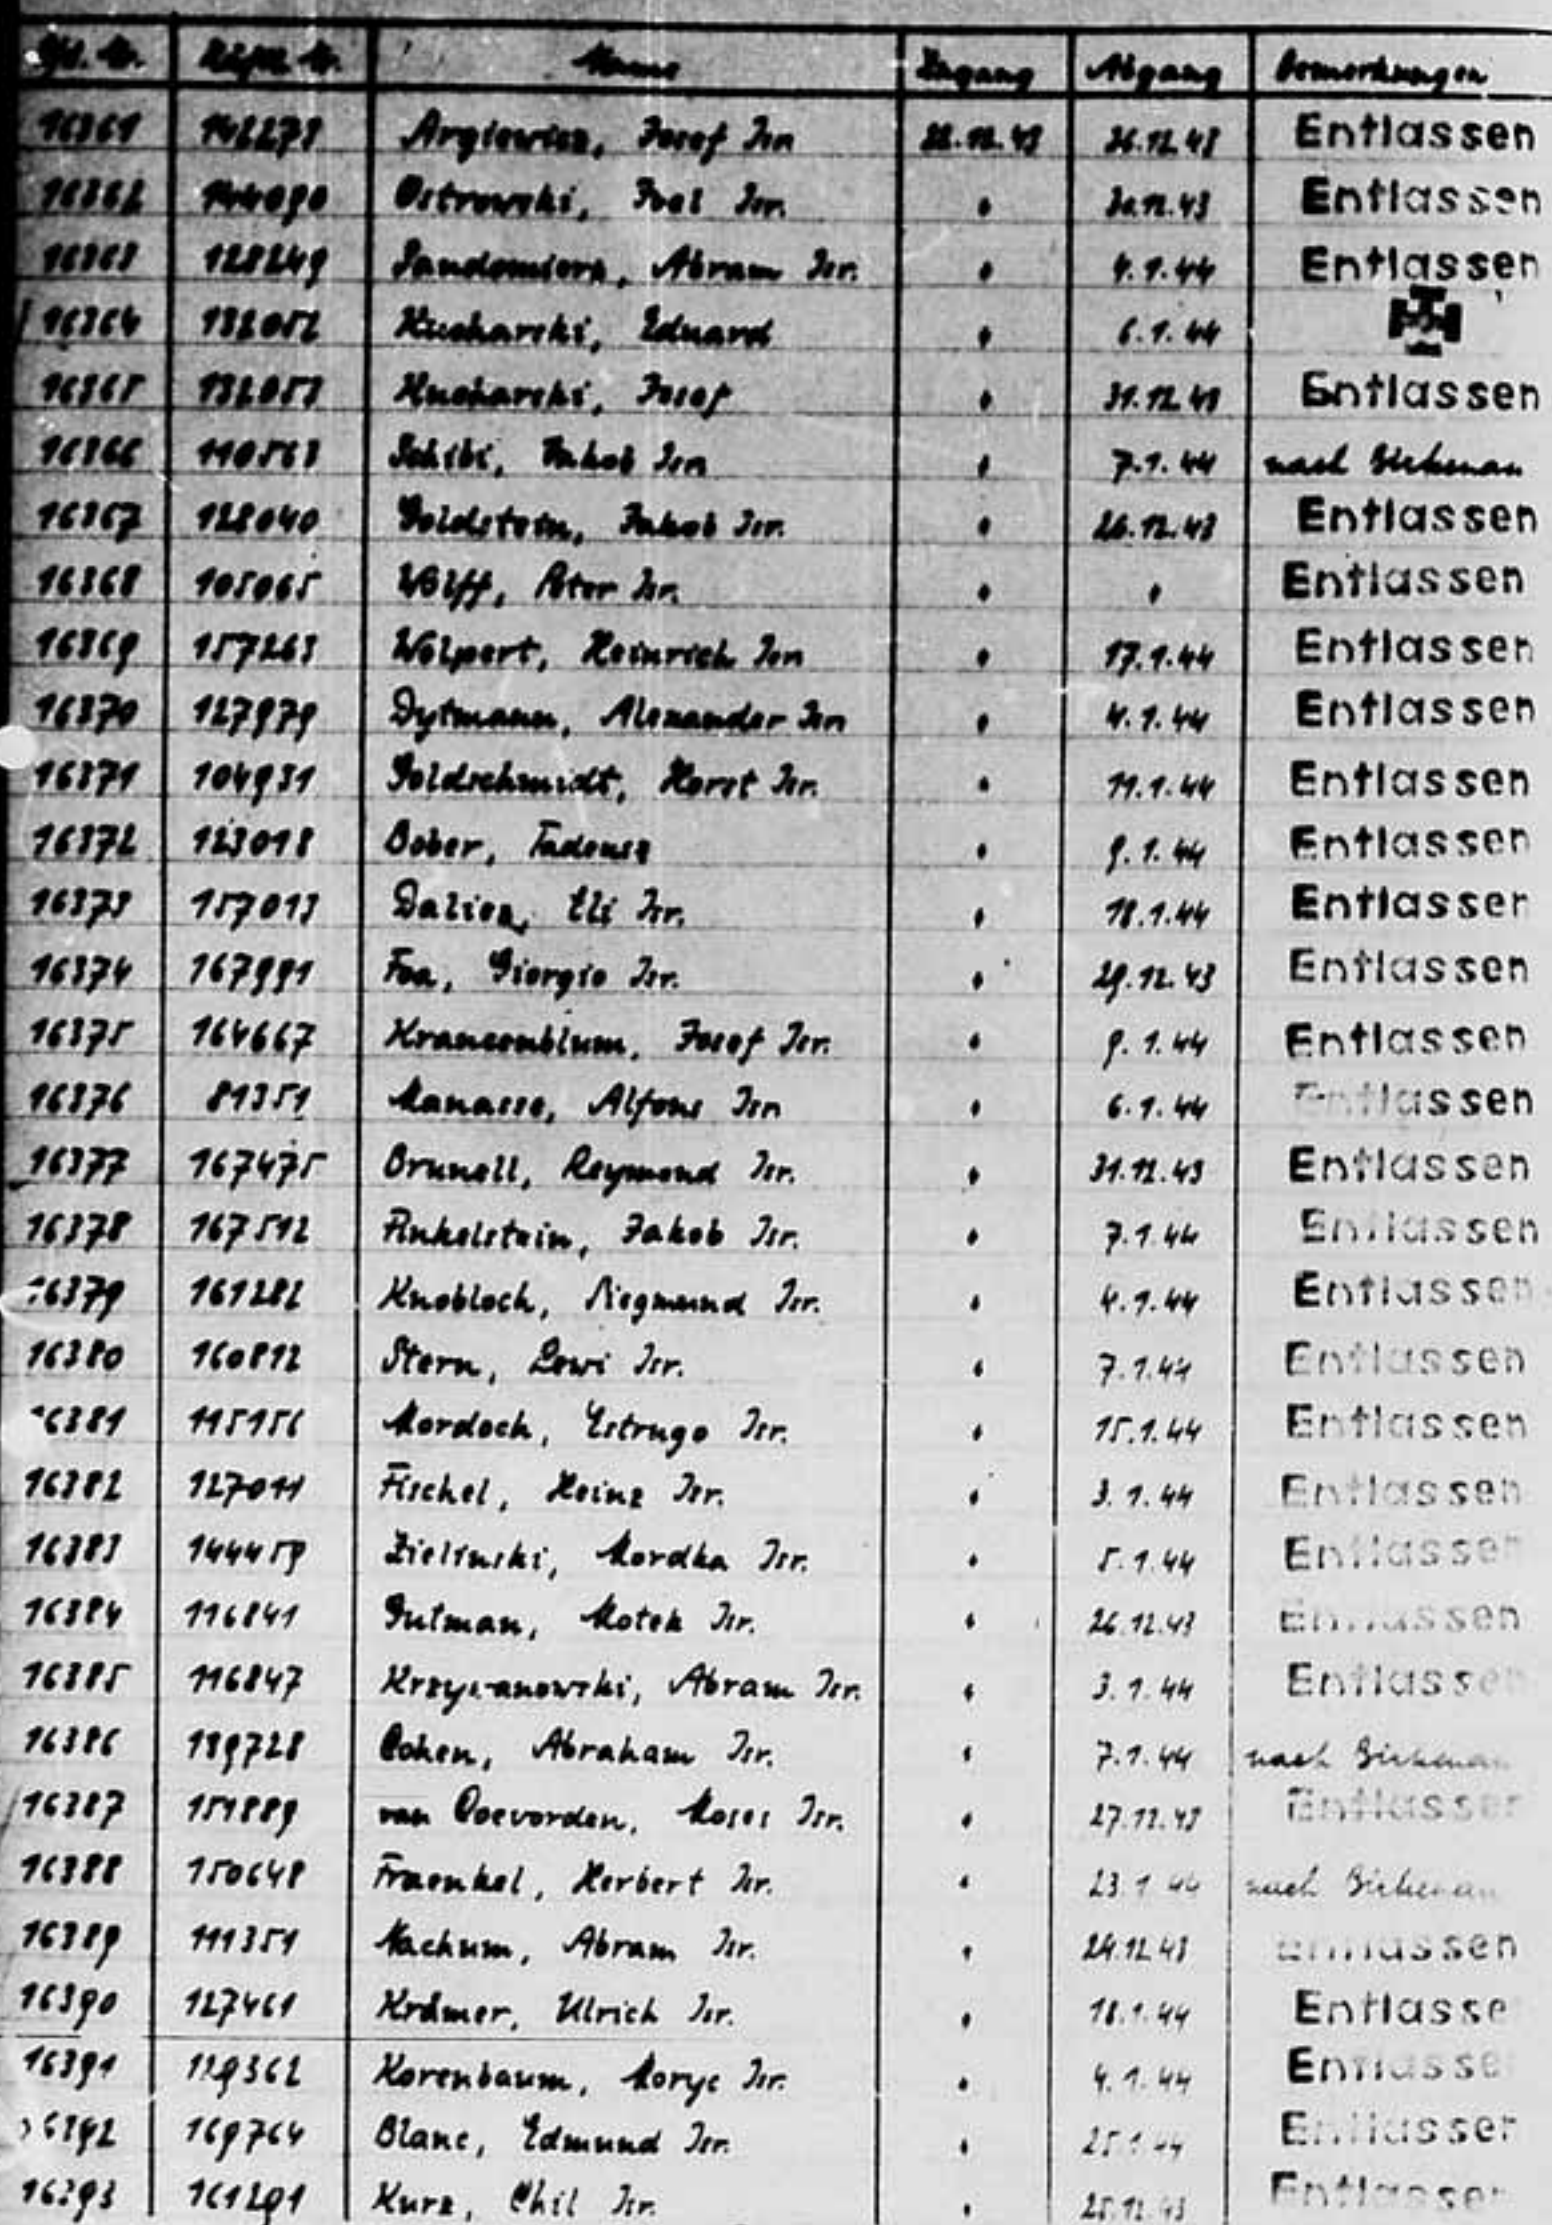 Lfd. Nr. Häftl. Nr. Name Zugang Abgang Bemerkungen
16361 142273 Argiewicz, Josef Isr. 22.12.43 26.12.43 Entlassen
16362 144090 Ostrowski, Isr. " 30.12.43 Entlassen
16363 128249 Abram Isr. " 4.1.44 Entlassen
16364 132052 Kucharski, Eduard " 6.1.44
16365 132053 Kucharski, Josef " 31.12.43 Entlassen
16366 110563 Schibi, Jakob Isr. " 7.1.44 nach Birkenau
16367 128040 Goldstein, Jakob Isr. " 26.12.43 Entlassen
16368 105065 Wolff, Peter Isr. " " Entlassen
16369 157263 Wolpert, Heinrich Isr. " 17.1.44 Entlassen
16370 127979 Dytmann, Alexander Isr. " 4.1.44 Entlassen
16371 104931 Goldschmidt, Horst Isr. " 11.1.44 Entlassen
16372 123018 Bober, Tadeusz " 9.1.44 Entlassen
16373 157013 Eli Isr. " 18.1.44 Entlassen
16374 167991 Foa, Giorgio Isr. " 29.12.43 Entlassen
16375 164667 Krancenblum, Josef Isr. " 9.1.44 Entlassen
16376 81351 Manasse, Alfons Isr. " 6.1.44 Entlassen
16377 167475 Brunell, Reymond Isr. " 31.12.43 Entlassen
16378 167512 Finkelstein, Jakob Isr. " 7.1.44 Entlassen
16379 161282 Knobloch, Siegmund Isr. " 4.1.44 Entlassen
16380 160812 Stern, Lewi Isr. " 7.1.44 Entlassen
16381 115156 Mordoch, Estrugo Isr. " 15.1.44 Entlassen
16382 127011 Fischel, Heinz Isr. " 3.1.44 Entlassen
16383 144459 Zielinski, Mordka Isr. " 5.1.44 Entlassen
16384 116841 Gutman, Motek Isr. " 26.12.43 Entlassen
16385 116847 Krzyzanowski, Abram Isr. " 3.1.44 Entlassen
16386 139728 Cohen, Abraham Isr. " 7.1.44 nach Birkenau
16387 151889 van Coevorden, Moses Isr. " 27.12.43 Entlassen
16388 150648 Fraenkel, Herbert Isr. " 23.1.44 nach Birkenau
16389 111351 Nachum, Abram Isr. " 24.12.43 Entlassen
16390 127461 Krämer, Ulrich Isr. " 18.1.44 Entlassen
16391 129362 Korenbaum, Moryc Isr. " 4.1.44 Entlassen
16392 169764 Blanc, Edmund Isr. " 25.1.44 Entlassen
16393 161291 Kurz, Chil Isr. " 25.12.43 Entlassen